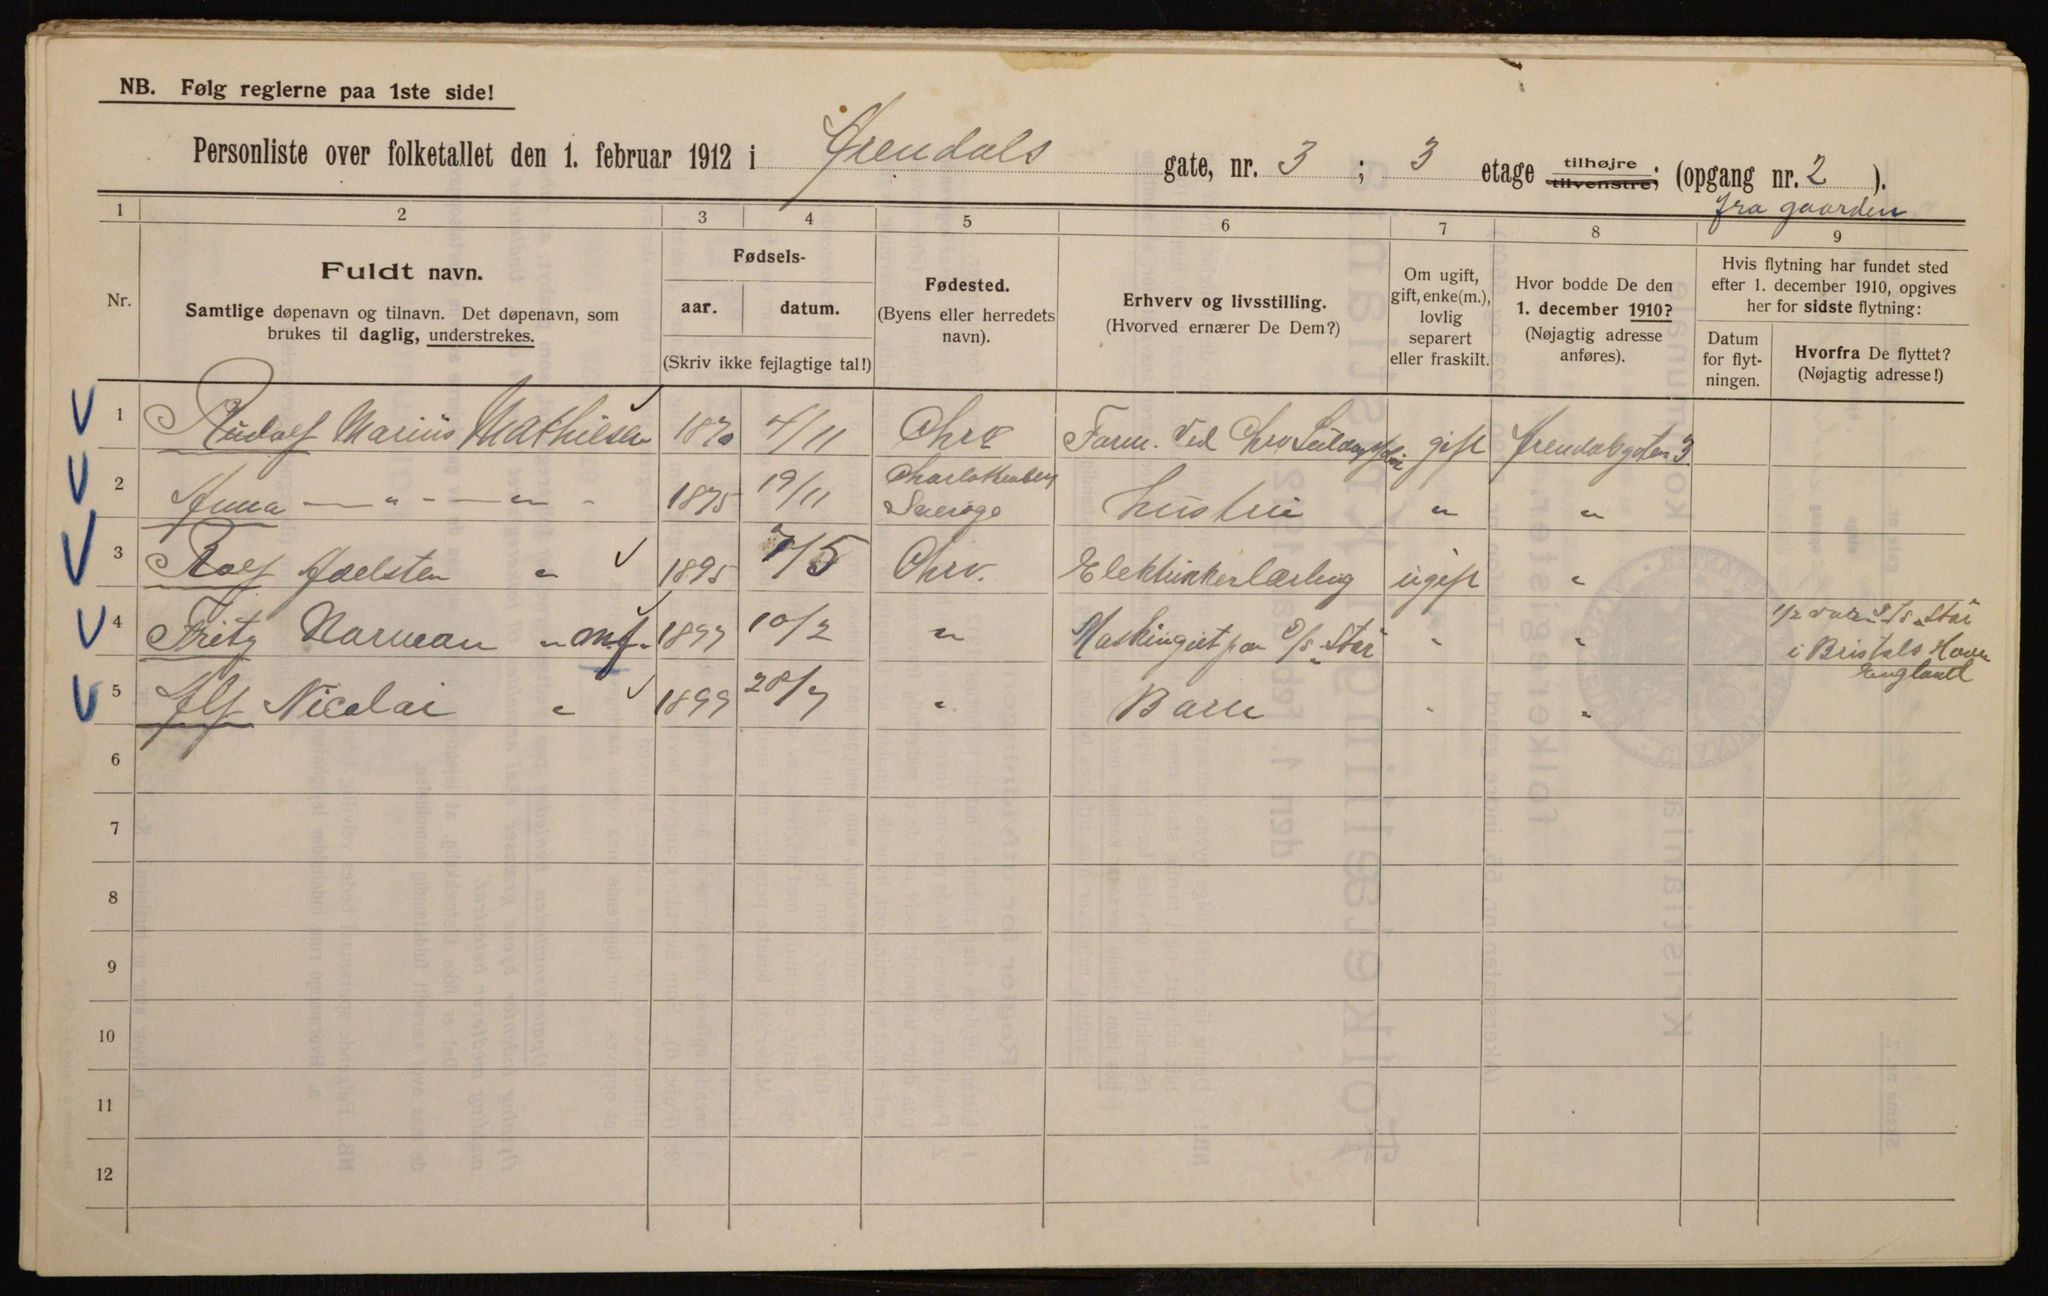 NB. Følg reglerne paa 1ste side!
Personliste over folketallet den 1. februar 1912 i Arendals gate, nr. 3 ; 3 etage tilhøjre tilvenstre; (opgang nr. 2 ).
fra gaarden
1 2 3 4 5 6 7 8 9
Nr.
Fuldt navn.
Samtlige døpenavn og tilnavn. Det døpenavn, som
brukes til daglig, understrekes.
Fødsels-
aar. datum.
(Skriv ikke fejlagtige tal!)
Fødested.
(Byens eller herredets
navn).
Erhverv og livsstilling.
(Hvorved ernærer De Dem?)
Om ugift,
gift, enke(m.),
lovlig
separert
eller fraskilt.
Hvor bodde De den
1. december 1910?
(Nøjagtig adresse
anføres).
Hvis flytning har fundet sted
efter 1. december 1910, opgives
her for sidste flytning:
Datum
for flyt-
ningen.
Hvorfra De flyttet?
(Nøjagtig adresse!)
1 Rudolf Marius Mathiesen 1870 4/11 Chra Form. ved Chra gift Arendalsgaten 3
2 Anna — „ - — „ - 1875 19/11 Charlottenberg Sverige hustru „ „
3 Rolf Adelsten „ 1895 7/5 Chra. Elektrikerlærling ugift „
4 Fritz Norman „ mf. 1897 10/2 „ Maskingut paa S/S „Stør „ „ 1/2 var S/S „Stør
i Bristols Havn
England
5 Alf Nicolai „ 1899 28/7 „ Barn „ „
6
7
8
9
10
11
12